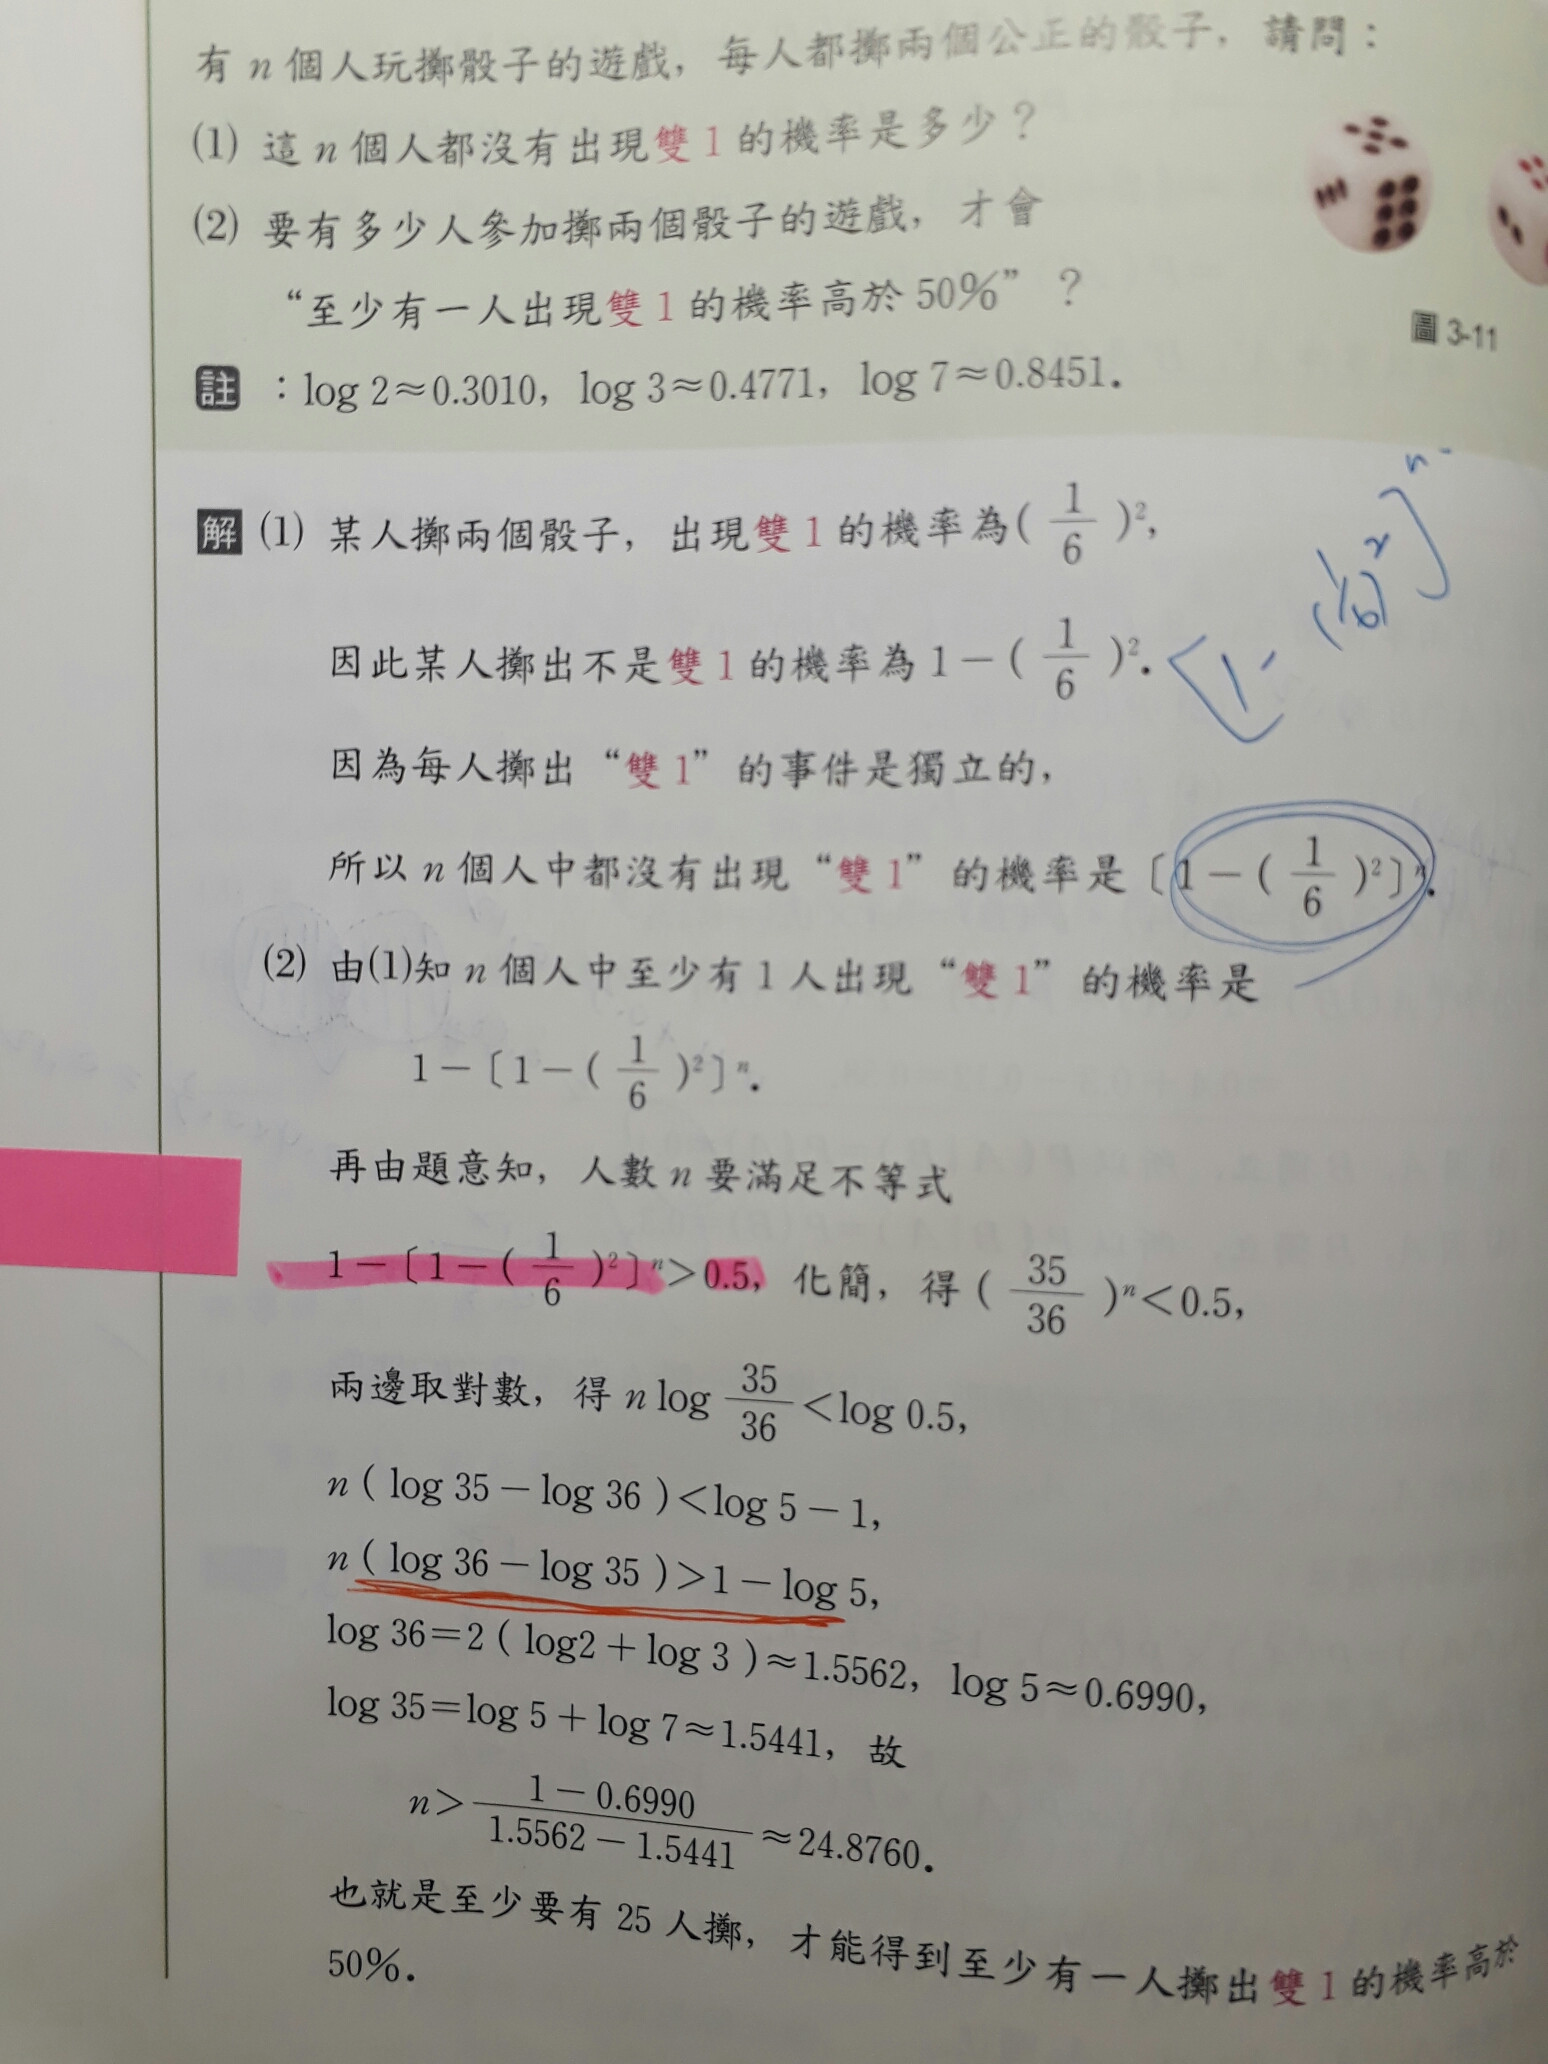 有 n 個人玩擲骰子的遊戲，每人都擲兩個公正的骰子，請問：
(1) 這 n 個人都沒有出現雙 1 的機率是多少？
(2) 要有多少人參加擲兩個骰子的遊戲，才會
“至少有一人出現雙 1 的機率高於 50%” ？
圖 3-11
註：log 2≈0.3010，log 3≈0.4771，log 7≈0.8451．
解 (1) 某人擲兩個骰子，出現雙 1 的機率為( 1/6 )²，
因此某人擲出不是雙 1 的機率為 1－( 1/6 )²．
[1- (1/6)²]ⁿ
因為每人擲出 “雙 1” 的事件是獨立的，
所以 n 個人中都沒有出現 “雙 1” 的機率是〔1－( 1/6 )²〕ⁿ．
(2) 由(1)知 n 個人中至少有 1 人出現 “雙 1” 的機率是
1－〔1－( 1/6 )²〕ⁿ．
再由題意知，人數 n 要滿足不等式
1－〔1－( 1/6 )²〕ⁿ＞0.5，化簡，得 ( 35/36 )ⁿ＜0.5，
兩邊取對數，得 n log 35/36 ＜log 0.5，
n ( log 35－log 36 )＜log 5－1，
n ( log 36－log 35 )＞1－log 5，
log 36＝2 ( log2＋log 3 )≈1.5562，log 5≈0.6990，
log 35＝log 5＋log 7≈1.5441，故
n＞ (1－0.6990)/(1.5562－1.5441) ≈24.8760．
也就是至少要有 25 人擲，才能得到至少有一人擲出雙 1 的機率高於
50%．